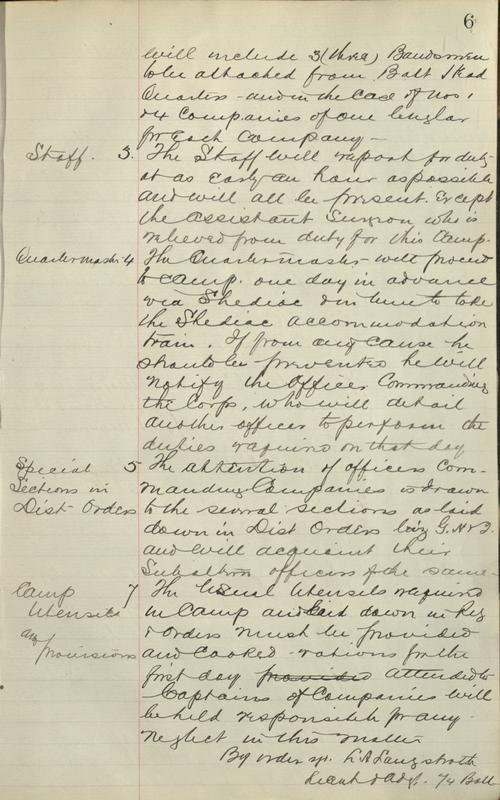 6
will include 3 (three) Bandsmen
to be attached from Batt Head
Quarters - and in the case of Nos 1
& 4 Companies of one bugler
for each Company -
Staff. 3. The Staff will report for duty
at as early an hour as possible
and will all be present. Except
the assistant Surgeon who is
relieved from duty for this Camp.
Quartermaster 4 The Quartermaster will proceed
to camp. one day in advance
via Shediac & in time to take
the Shediac accommodation
train. If from any cause he
should be prevented he will
notify the Officer Commanding
the Corps, who will detail
another officer to perform the
duties required on that day
Special 5 The attention of officers Com-
Sections in manding Companies is drawn
Dist Orders to the several sections as laid
down in Dist Orders
and will acquaint their
Subaltern officers of the same -
Camp 7 The Usual Utensils required
Utensils in Camp and laid down in Reg
and & Orders must be provided
Provisions and cooked rations for the
first day provided attended to
Captains of Companies will
be held responsible for any
neglect in this matter
By order sgn. L A Langstroth
Lieut & Adjt. 74 Batt